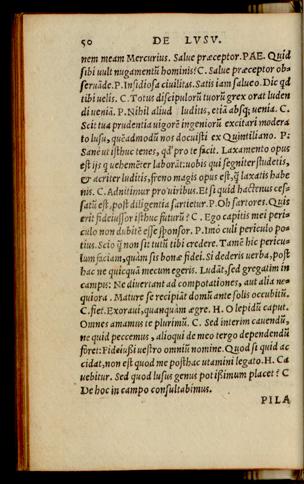 50 DE LVSV.
nem meam Mercurius. Salue præceptor. PAE. Quid
sibi uult nugamentũ hominis? C. Salue præceptor ob-
seruãde. P. Insidiosa ciuilitas. Satis iam salueo. Dic qd
tibi uelis. C. Totus discipulorũ tuorũ grex orat luden
di ueniã. P. Nihil aliud luditis, etiã absq; uenia. C.
Scit tua prudentia uigorẽ ingeniorũ excitari modera
to lusu, quẽadmodũ nos docuisti ex Quintiliano. P.
Sane ut isthuc tenes, qd pro te facit. Laxamento opus
est ijs q uehemẽter laborãt: uobis qui segniter studetis,
& acriter luditis, freno magis opus est, q̃ laxatis habe
nis. C. Adnitimur pro uiribus. Et si quid hactenus ces-
satũ est, post diligentia sartietur. P. Oh sartores. Quis
erit fideiussor isthuc futurũ? C. Ego capitis mei peri-
culo non dubitẽ esse sponsor. P. Imò culi periculo po-
tius. Scio q̃ non sit tutũ tibi credere. Tamẽ hic pericu-
lum faciam, quàm sis bonæ fidei. Si dederis uerba, post
hac ne quicquã mecum egeris. Ludãt, sed gregatim in
campis: Ne diuertant ad compotationes, aut alia ne-
quiora. Mature se recipiãt domũ ante solis occubitũ.
C. fiet. Exoraui, quanquàm ægre. H. O lepidũ caput.
Omnes amamus te plurimũ. C. Sed interim cauendũ,
ne quid peccemus, alioqui de meo tergo dependendũ
foret: Fideiußi uestro omniũ nomine. Quod si quid ac
cidat, non est quod me posthac utamini legato. H. Ca
uebitur. Sed quod lusus genus potißimum placet? C
De hoc in campo consultabimus.
PILA